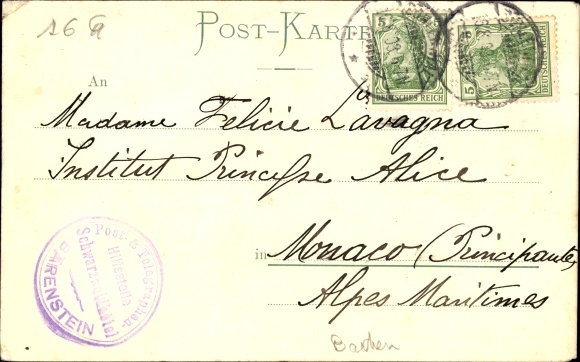 16 a
POST-KARTE
5
DEUTSCHES REICH
5
DEUTSCHES REICH
An
Madame Felicie Lavagna
Institut Principsse Alice
in Monaco (Principauté)
Alpes Maritimes
Post- & Telegraphen-
Hilfsstelle
BÄRENSTEIN
Baden